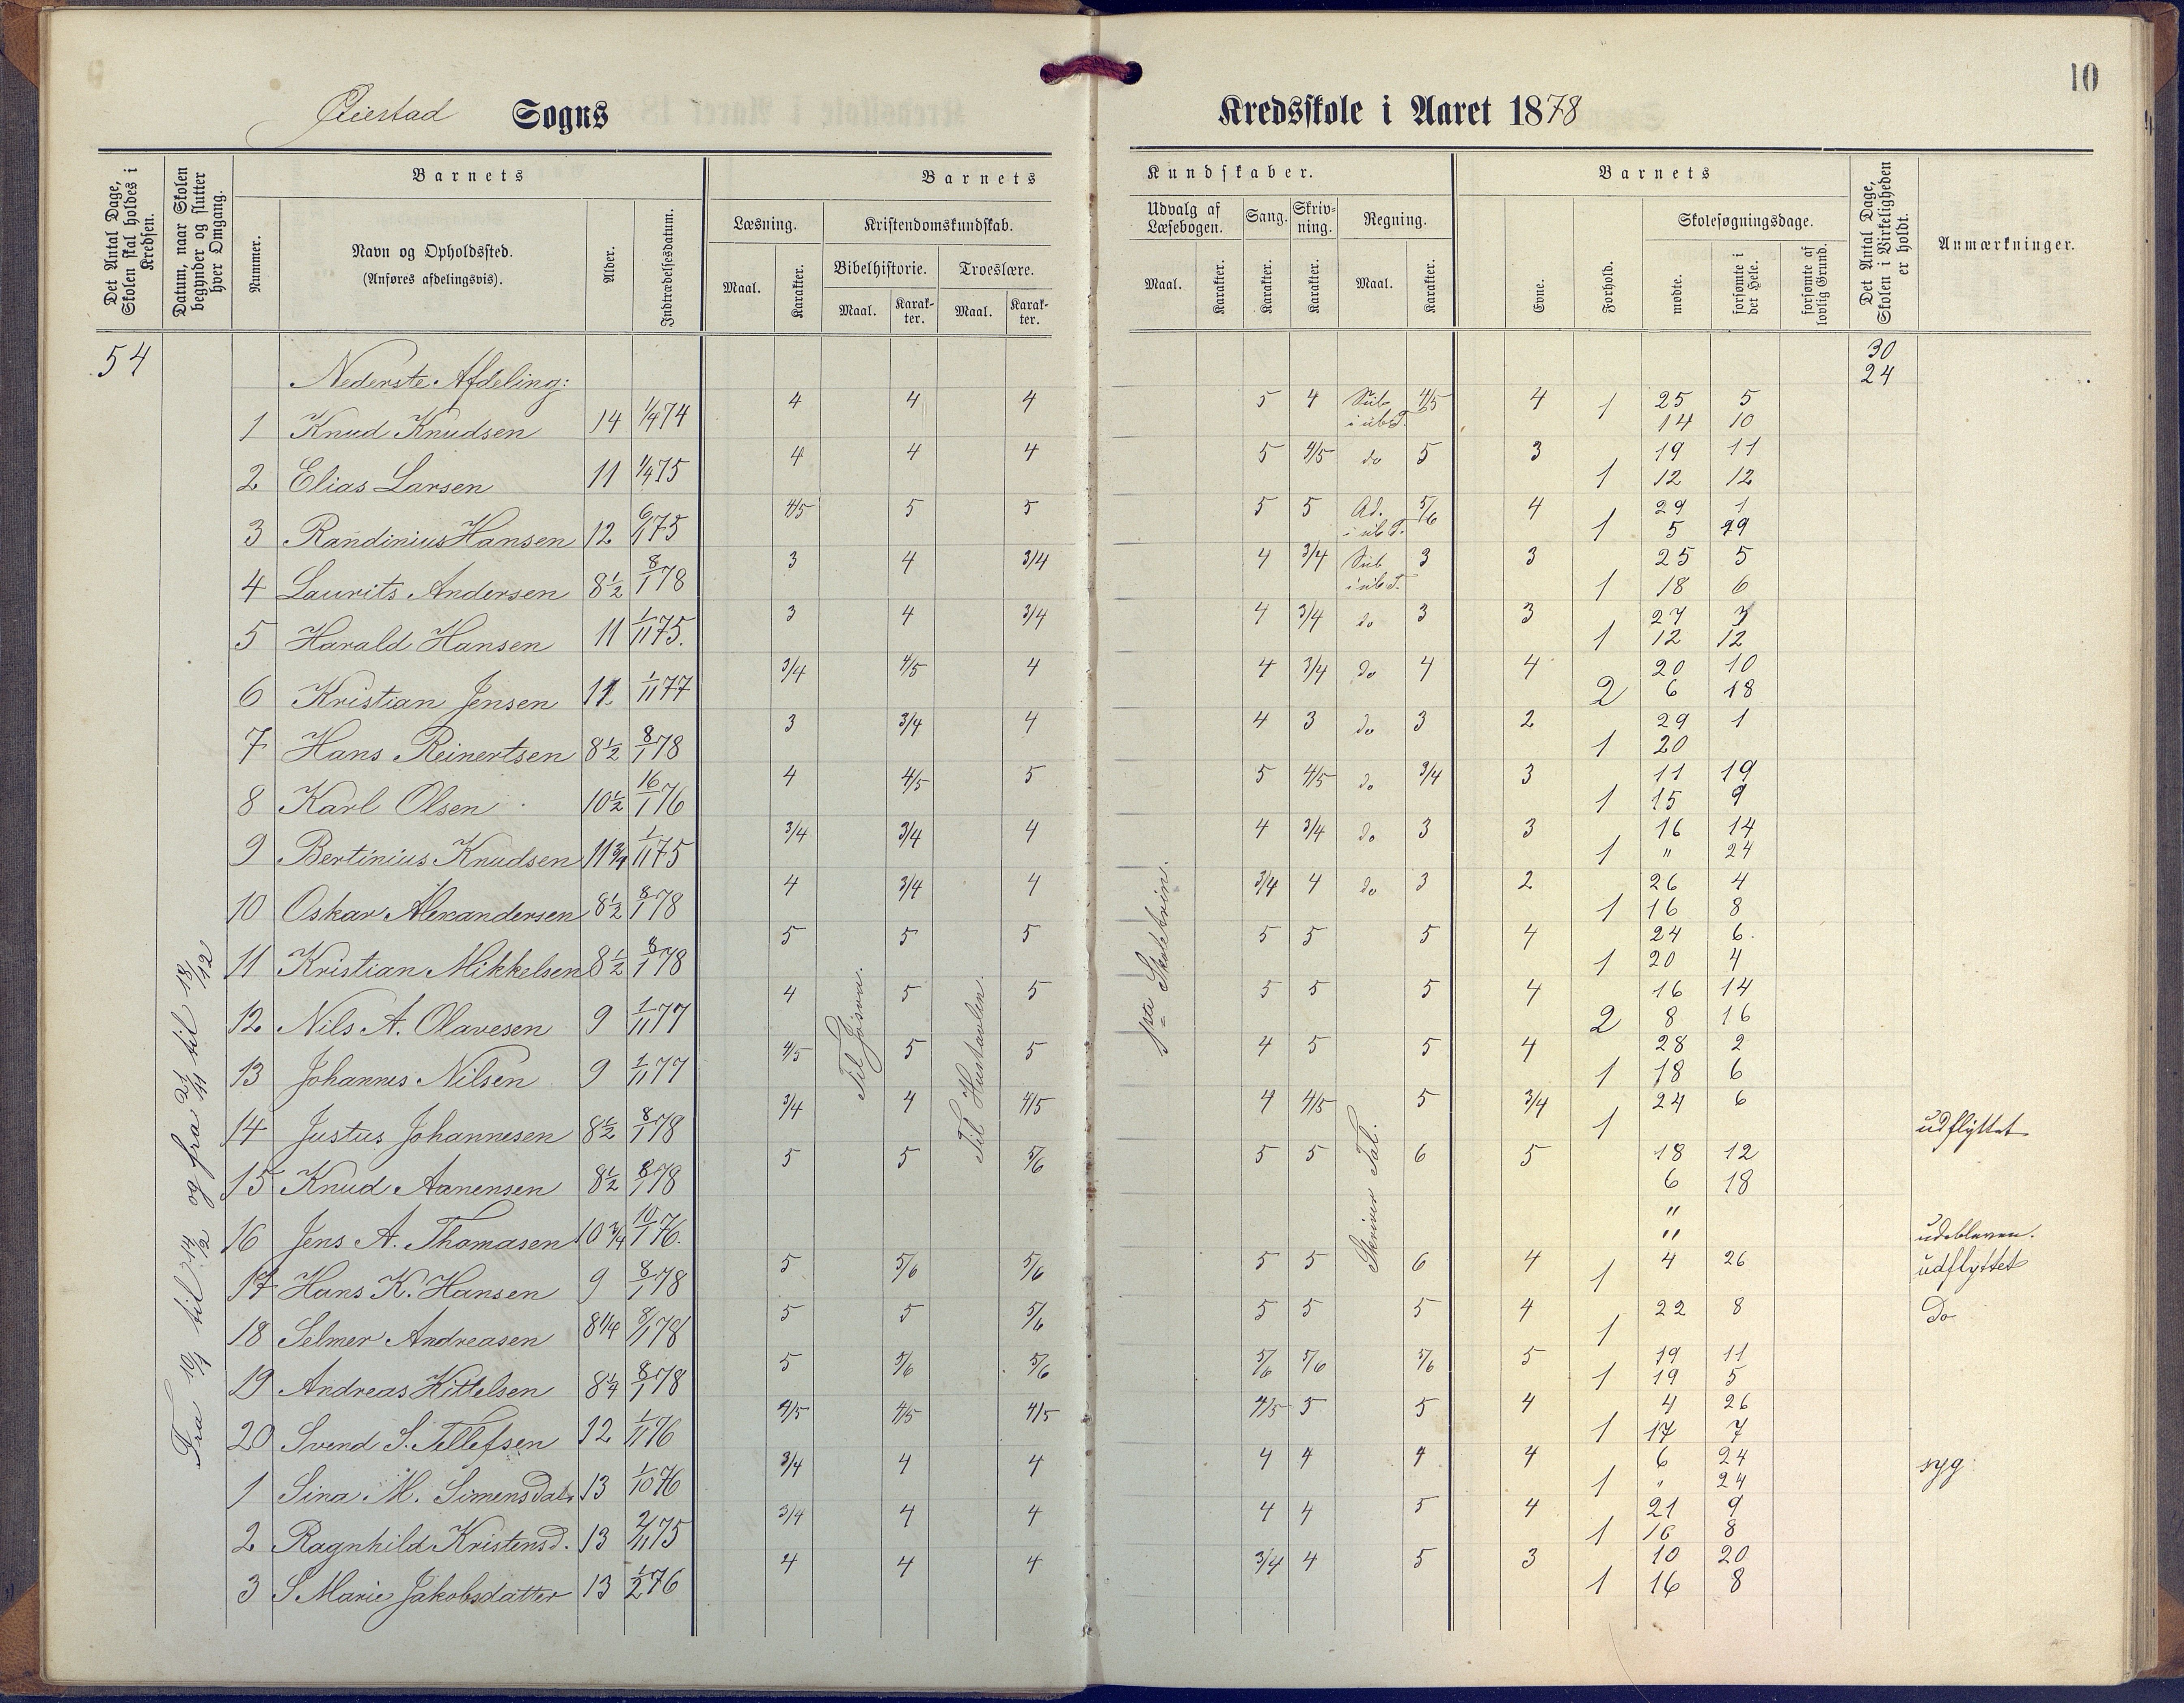 10
Øiestad Sogns Kredsskole i Aaret 1878
Det Antal Dage, Skolen skal holdes i Kredsen.
Datum, naar Skolen begynder og slutter hver Omgang.
Barnets
Nummer.
Navn og Opholdssted.
(Anføres afdelingsvis).
Alder.
Indtrædelsesdatum.
Barnets Kundskaber.
Læsning.
Maal.
Karakter.
Kristendomskundskab.
Bibelhistorie.
Maal.
Karak-ter.
Troeslære.
Maal.
Karak-ter.
Udvalg af Læsebogen.
Maal.
Karakter.
Sang.
Karakter.
Skriv-ning.
Karakter.
Regning.
Maal.
Karakter.
Barnets
Evne.
Forhold.
Skolesøgningsdage.
mødte.
forsømte i det Hele.
forsømte af lovlig Grund.
Det Antal Dage, Skolen i Virkeligheden er holdt.
Anmærkninger.
54 Nederste Afdeling: 30 24
1 Knud Knudsen 14 1/4 74 4 4 4 5 4 Sub i ub T. 4/5 4 1 25 5 14 10
2 Elias Larsen 11 1/4 75 4 4 4 5 4/5 do 5 3 1 19 11 12 12
3 Randinius Hansen 12 6/1 75 4/5 5 5 5 5 Ad. i ub T. 5/6 4 1 29 1 5 19
4 Laurits Andersen 8½ 8/1 78 3 4 3/4 4 3/4 Sub i ub T. 3 3 1 25 5 18 6
5 Harald Hansen 11 1/11 75. 3 4 3/4 4 3/4 do 3 3 1 27 3 12 12
6 Kristian Jensen 11 1/11 77 3/4 4/5 4 4 3/4 do 4 4 2 20 10 6 18
7 Hans Reinertsen 8½ 8/1 78 3 3/4 4 4 3 do 3 2 1 29 1 20
8 Karl Olsen 10½ 16/1 76 4 4/5 5 5 4/5 do 3/4 3 1 11 19 15 9
9 Bertinius Knudsen 11¾ 1/11 75 3/4 3/4 4 4 3/4 do 3 3 1 16 14 " 24
10 Oskar Alexandersen 8½ 8/1 78 4 3/4 4 3/4 4 do 3 2 1 26 4 16 8
11 Kristian Mikkelsen 8½ 8/1 78 5 5 5 5 5 5 4 1 24 6 20 4
12 Nils A. Olavesen 9 1/11 77 4 5 5 5 5 5 4 2 16 14 8 16
13 Johannes Nilsen 9 1/11 77 4/5 5 5 4 5 5 4 1 28 2 18 6
14 Justus Johannesen 8½ 8/1 78 3/4 4 4/5 4 4/5 5 3/4 1 24 6 udflyttet
15 Knud Aanensen 8½ 8/1 78 5 5 5/6 5 5 6 5 18 12 6 18
16 Jens A. Thomasen 10¾ 10/1 76. " " udebleven.
17 Hans K. Hansen 9 8/1 78 5 5/6 5/6 5 5 6 4 1 4 26 udflyttet
18 Selmer Andreasen 8¼ 8/1 78 5 5 5/6 5 5 5 4 1 22 8 Do
19 Andreas Kittelsen 8¼ 8/1 78 5 5/6 5/6 5/6 5/6 5/6 5 1 19 11 19 5
20 Svend S. Tellefsen 12 1/11 76 4/5 4/5 4/5 4/5 5 5 4 1 4 26 17 7
1 Sina M. Simensdatr 13 1/10 76 3/4 4 4 4 4 4 4 1 6 24 " 24 syg
2 Ragnhild Kristensd. 13 2/11 75 3/4 4 4 4 4 5 4 1 21 9 16 8
3 S Marie Jakobsdatter 13 1/2 76 4 4 4 3/4 4 5 3 1 10 20 16 8
Fra 10/1 til 14/2 og fra 21/11 til 18/12
Til Josva.
Til Hustavlen
paa Skoletrin.
Skriver Tal.